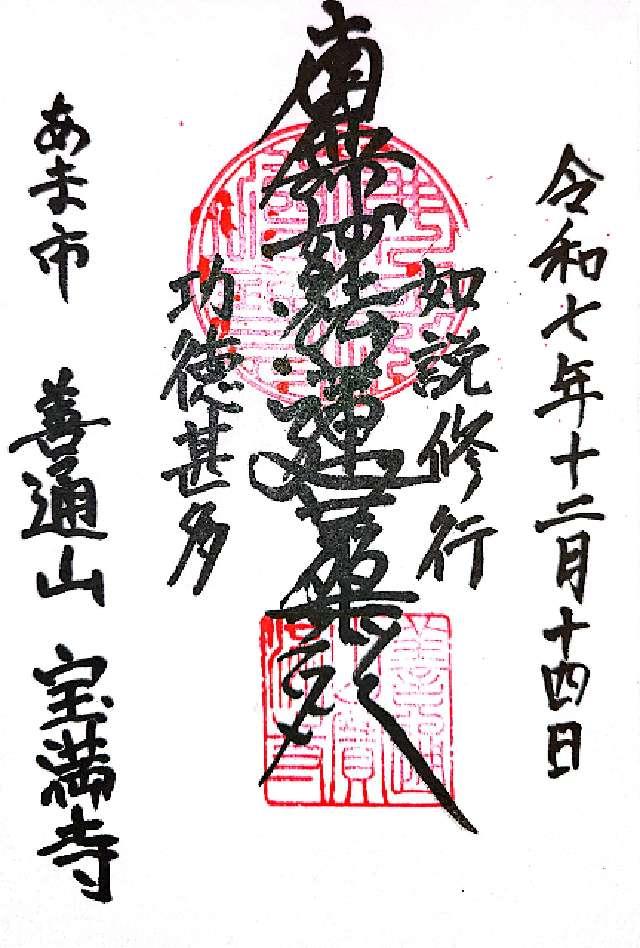 令和七年十二月十四日
如説修行
南無妙法蓮華経
功徳甚多
あま市 善通山 宝満寺